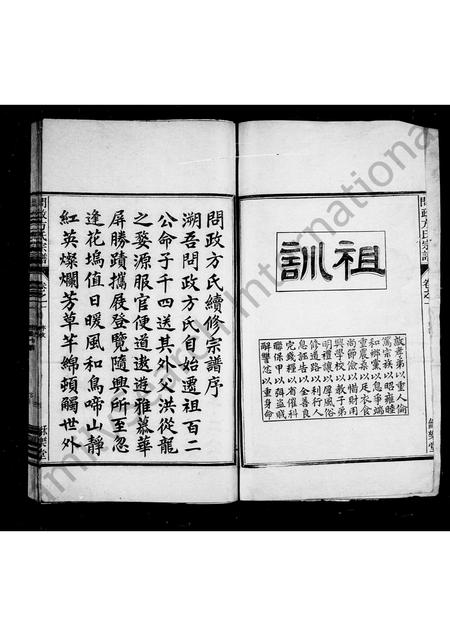 問政方氏宗譜
卷之一
敘樂堂
祖訓
敦孝弟以重人倫
篤宗族以昭雍睦
和鄉黨以息爭端
重農桑以足衣食
尚節儉以惜財用
興學校以教子弟
明禮讓以厚風俗
修道路以利行人
息誣告以全善良
完錢糧以省催科
聯保甲以弭盜賊
解讐忿以重身命
問政方氏續修宗譜序
溯吾問政方氏自始遷祖百二
公命子千四送其外父洪從龍
之婺源服官便道遨遊雅慕華
屏勝蹟攜屐登覽隨興所至忽
逢花塢值日暖風和鳥啼山靜
紅英爛爛芳草芊綿頓觸世外
問政方氏宗譜
卷之一
敘樂堂
Family Search International